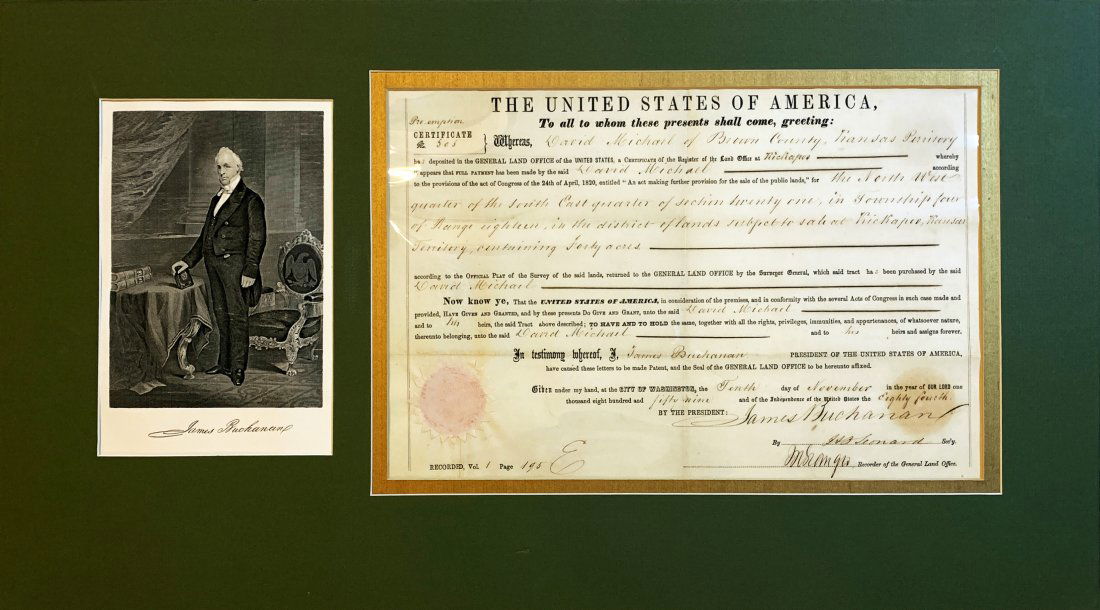 James Buchanan
THE UNITED STATES OF AMERICA,
To all to whom these presents shall come, greeting:
Pre-emption
CERTIFICATE
305
Whereas, David Michael of Brown County, Kansas Territory
has deposited in the GENERAL LAND OFFICE of the UNITED STATES, a Certificate of the Register of the Land Office at Kickapoo whereby
it appears that FULL PAYMENT has been made by the said David Michael according
to the provisions of the act of Congress of the 24th of April, 1820, entitled "An act making further provision for the sale of the public lands," for the North West
quarter of the South East quarter of section twenty one, in Township four
of Range eighteen, in the district of lands subject to sale at Kickapoo, Kansas
Territory, containing Forty acres
according to the OFFICIAL PLAT of the Survey of the said lands, returned to the GENERAL LAND OFFICE by the Surveyor General, which said tract has been purchased by the said
David Michael
Now know ye, That the UNITED STATES OF AMERICA, in consideration of the premises, and in conformity with the several Acts of Congress in such case made and
provided, HAVE GIVEN AND GRANTED, and by these presents DO GIVE AND GRANT, unto the said David Michael
and to his heirs, the said Tract above described; TO HAVE AND TO HOLD the same, together with all the rights, privileges, immunities, and appurtenances, of whatsoever nature,
thereunto belonging, unto the said David Michael and to his heirs and assigns forever.
In testimony whereof, I, James Buchanan PRESIDENT OF THE UNITED STATES OF AMERICA,
have caused these letters to be made Patent, and the Seal of the GENERAL LAND OFFICE to be hereunto affixed.
Given under my hand, at the CITY OF WASHINGTON, the Tenth day of November in the year of OUR LORD one
thousand eight hundred and fifty nine and of the Independence of the United States the Eighty fourth.
BY THE PRESIDENT: James Buchanan
By J.B. Leonard Sec'y.
RECORDED, Vol. 1 Page 195 E
Recorder of the General Land Office.